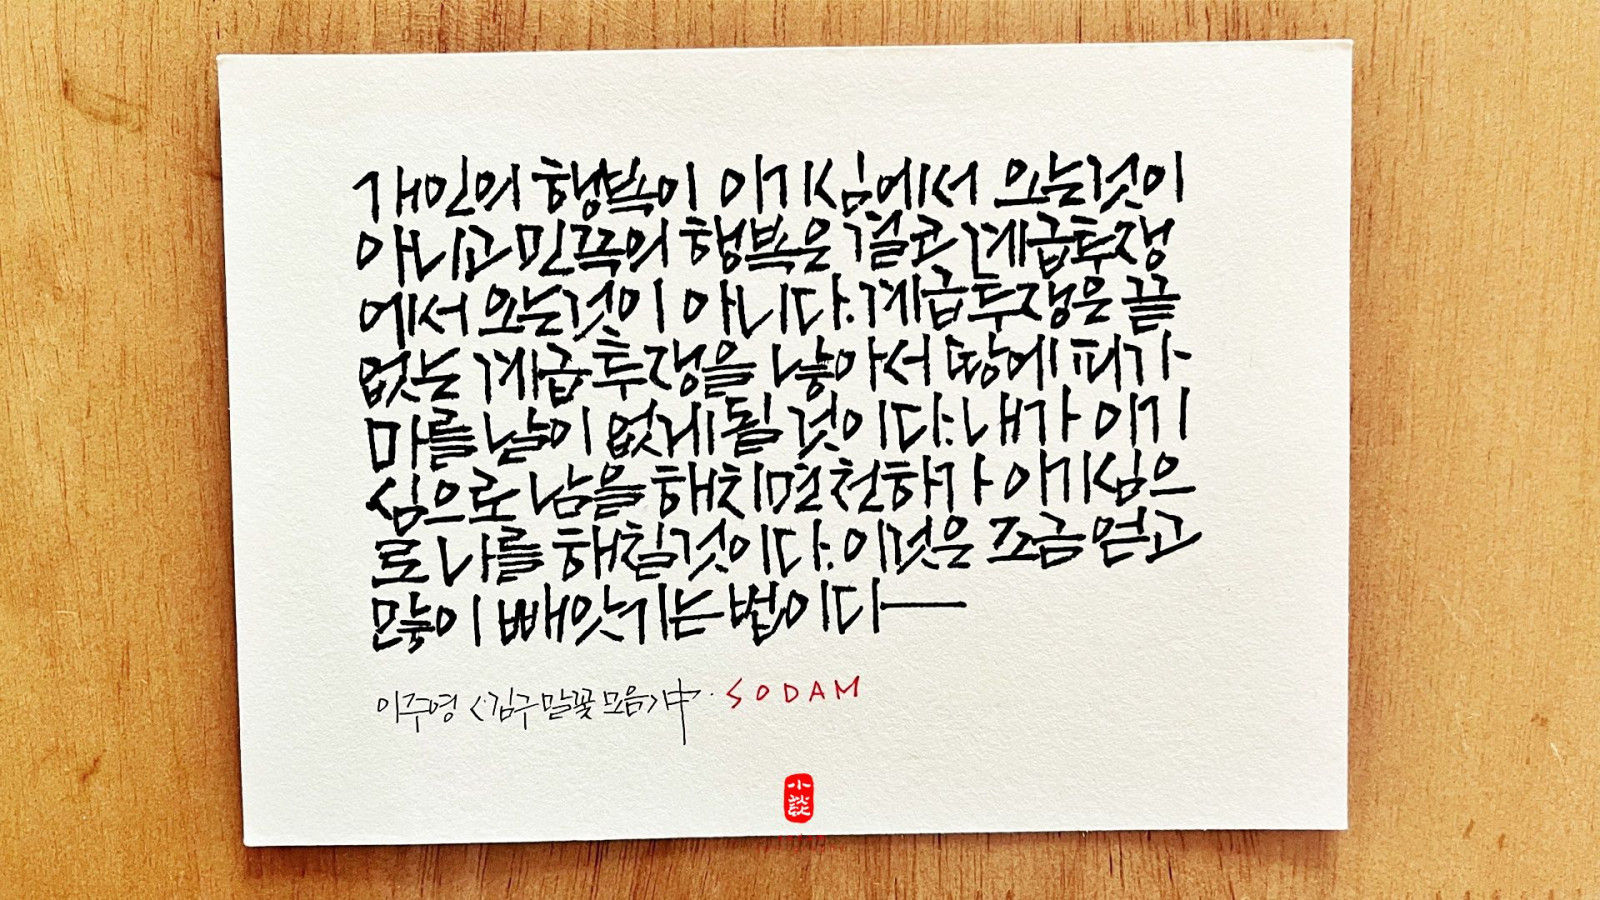 개인의 행복이 이기심에서 오는것이
아니고 민족의 행복은 결코 계급투쟁
에서 오는것이 아니다. 계급투쟁은 끝
없는 계급투쟁을 낳아서 땅에 피가
마를 날이 없게 될 것이다. 내가 이기
심으로 남을 해치면 천하가 이기심으
로 나를 해칠것이다. 이것은 조금 얻고
많이 빼앗기는 법이다
이주영 <김구 말꽃 모음> 中. SODAM
小
談